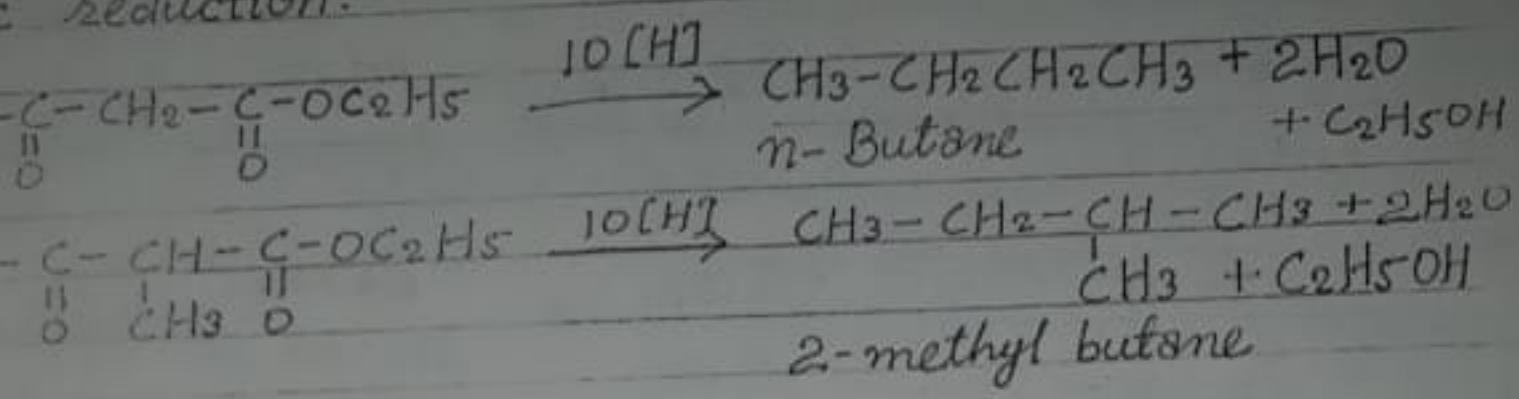 : reduction.
-C-CH2-C-OC2H5 10[H] → CH3-CH2CH2CH3 + 2H2O
|| || + C2H5OH
O O n-Butane
-C-CH-C-OC2H5 10[H] → CH3-CH2-CH-CH3 + 2H2O
|| | || |
O CH3 O CH3 + C2H5OH
2-methyl butane